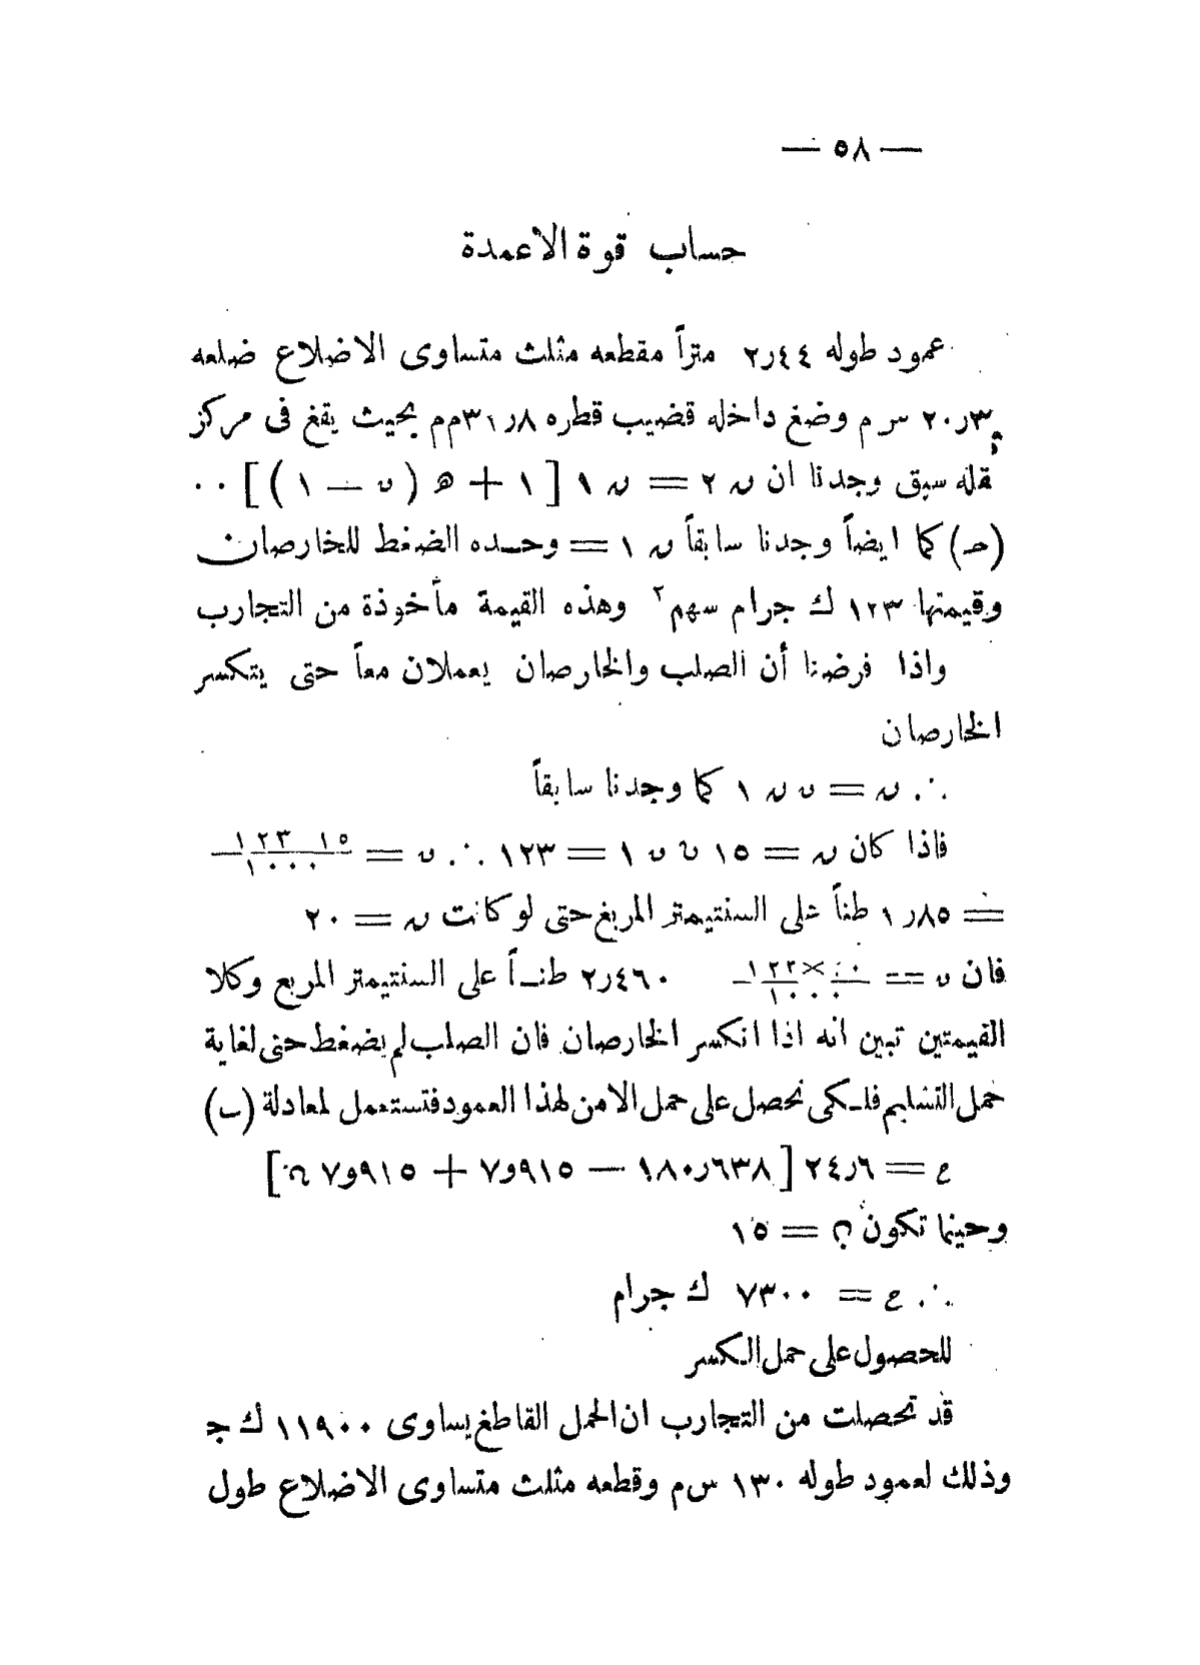 — ٥٨ —
حساب قوة الاعمدة
عمود طوله ٢٫٤٤ متراً مقطعه مثلث متساوى الاضلاع ضلعه
٢٠٫٣ س م وضغ داخله قضيب قطره ٣١٫٨مم بحيث يقغ فى مركز
قله سبق وجدنا ان ں ٢ = ں ١ [ ١ + ه ( ں — ١ ) ] ٠٠
(حـ) كما ايضاً وجدنا سابقاً ں ١ = وحـده الضغط للخارصان
وقيمتها ١٢٣ ك جرام سهم٢ وهذه القيمة مأخوذة من التجارب
واذا فرضنا أن الصلب والخارصان يعملان معاً حتى يتكسر
الخارصان
∴ ں = ں ں ١ كما وجدنا سابقاً
فاذا كان ں = ١٥ ں ں ١ = ١٢٣ ∴ ں = ١٥ ١٢٣ / ١٠٠٠
= ١٫٨٥ طناً على السنتيمتر المربغ حتى لو كانت ں = ٢٠
فان ں = ٢٠ × ١٢٣ / ١٠٠٠ ٢٫٤٦٠ طنـاً على السنتيمتر المربع وكلا
القيمتين تبين انه اذا انكسر الخارصان فان الصلب لم يضغط حتى لغاية
حمل التسليم فلـكى نحصل على حمل الامن لهذا العمود فتستعمل لمعادلة (ب)
ع = ٢٤٫٦ [ ١٨٠٫٦٣٨ — ٧و٩١٥ + ٧و٩١٥ ں ]
وحينما تكون ں = ١٥
∴ ع = ٧٣٠٠ ك جرام
للحصول على حمل الكسر
قد تحصلت من التجارب ان الحمل القاطغ يساوى ١١٩٠٠ ك ج
وذلك لعمود طوله ١٣٠ س م وقطعه مثلث متساوى الاضلاع طول